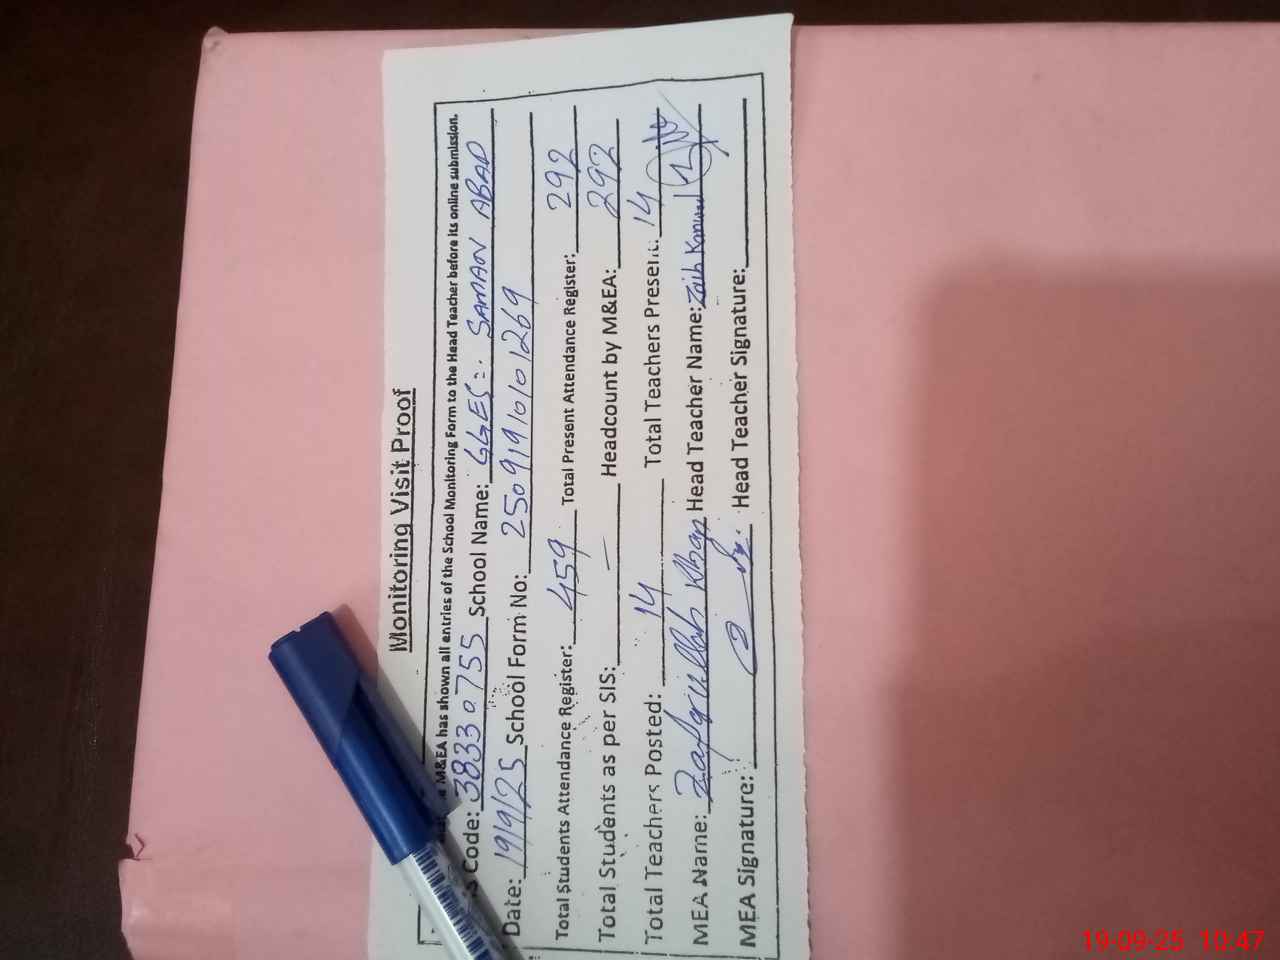 Monitoring Visit Proof
M&EA has shown all entries of the School Monitoring Form to the Head Teacher before its online submission.
s Code: 38330755 School Name: GGES: SAMAN ABAD
Date: 19/9/25 School Form No: 2509191010101269
Total Students Attendance Register: 459 Total Present Attendance Register: 292
Total Students as per SIS: — Headcount by M&EA: 292
Total Teachers Posted: 14 Total Teachers Present: 14
MEA Name: Zafarullah Khan Head Teacher Name: Zaib
MEA Signature: Head Teacher Signature:
19-09-25 10:47